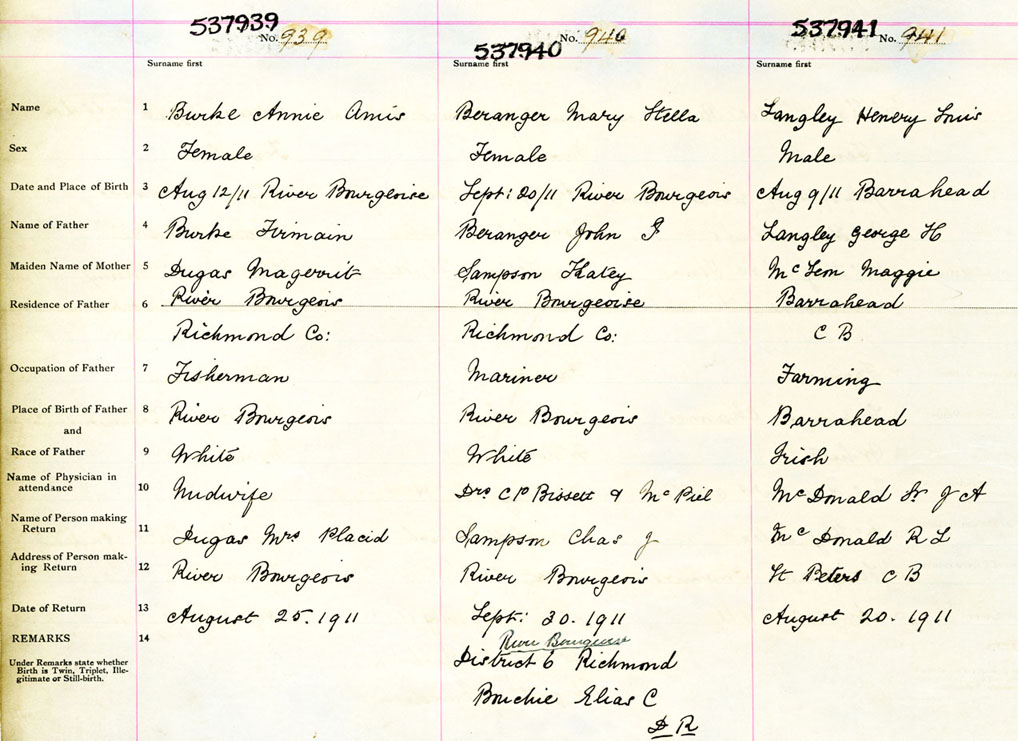 537939 No. 939 537940 No. 940 537941 No. 941
Surname first Surname first Surname first
Name 1 Burke Annie Amis Beranger Mary Stella Langley Henery Louis
Sex 2 Female Female Male
Date and Place of Birth 3 Aug 12/11 River Bourgeoise Sept: 20/11 River Bourgeois Aug 9/11 Barrahead
Name of Father 4 Burke Firmain Beranger John G Langley George H
Maiden Name of Mother 5 Dugas Magerrit Sampson Katey Maggie
Residence of Father 6 River Bourgeois River Bourgeoise Barrahead
Richmond Co: Richmond Co: C B
Occupation of Father 7 Fisherman Mariner Farming
Place of Birth of Father 8 River Bourgeois River Bourgeois Barrahead
and
Race of Father 9 White White Irish
Name of Physician in
attendance 10 Midwife Drs C P Bissett & McDonald Dr J A
Name of Person making
Return 11 Dugas Mrs Placid Sampson Chas J McDonald R L
Address of Person mak-
ing Return 12 River Bourgeois River Bourgeois St Peters C B
Date of Return 13 August 25. 1911 Sept: 30. 1911 August 20. 1911
REMARKS 14 River Bourgeois
Under Remarks state whether
Birth is Twin, Triplet, Ille-
gitimate or Still-birth.
District 6 Richmond
Bouchie Elias C
D R